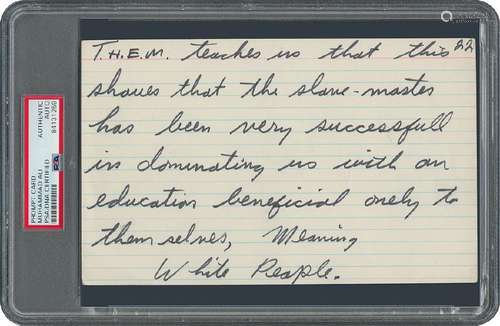 T.H.E.M. teaches us that this 22
shoues that the slave-master
has been very successfull
in dominating us with an
education beneficial onely to
themselves, Meaning
White Peaple.
PROMPT CARD
MUHAMMAD ALI
PSA/DNA CERTIFIED
AUTHENTIC
AUTO
84131266
PSA